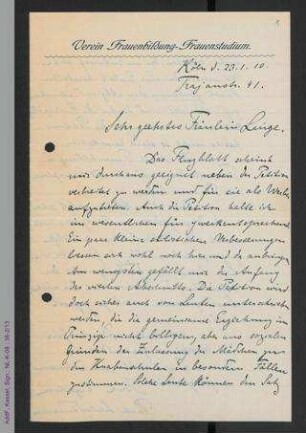 Verein Frauenbildung-Frauenstudium.
Köln d. 23.1.10.
Trajanstr. 41.
Sehr geehrtes Fräulein Lange.
Das Flugblatt scheint
mir durchaus geeignet neben der Petition
verbreitet zu werden und für sie als Werbe
aufzutreten. Auch die Petition halte ich
im wesentlichen für zweckentsprechend.
Ein paar kleine stilistischen Verbesserungen
lassen sich wohl noch hier und da anbringen.
Am wenigsten gefällt mir der Anfang
des vierten Abschnitts. Die Petition wird
doch sicher auch von Leuten unterschrieben
werden, die die gemeinsame Erziehung im
Prinzip nicht billigen, aber aus sozialen
Gründen der Zulassung der Mädchen zu
den Knabenschulen in besondern Fällen
zustimmen. Solche Leute können den Satz
AddF, Kassel, Sign.: NL-K-08